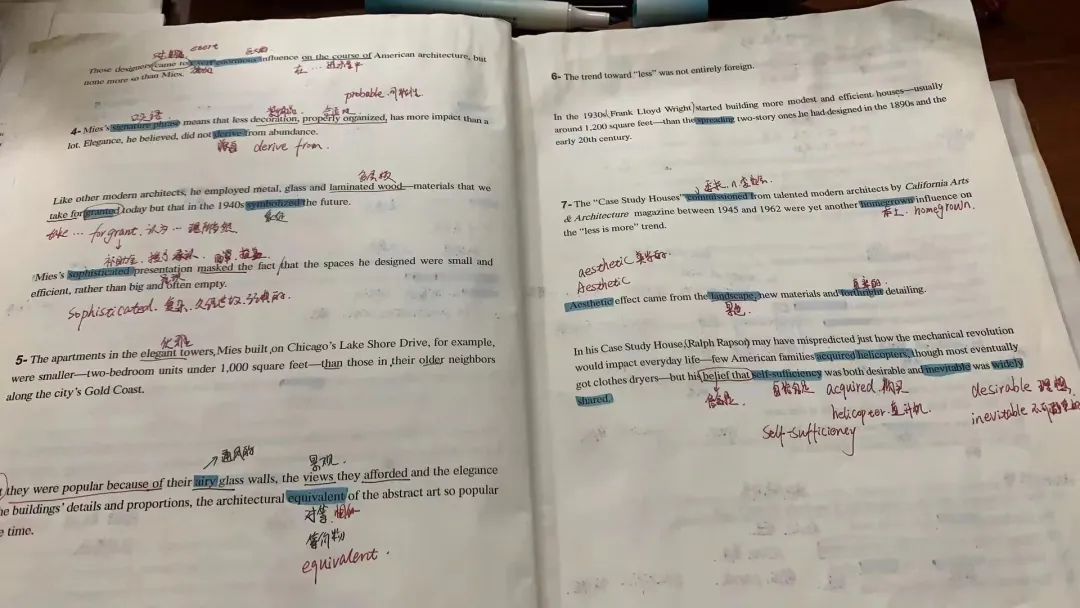 对……施加 exert 巨大的
These designers came to exert enormous influence on the course of American architecture, but
none more so than Mies. 施加 在…进程中
probable 可能性
口头语
4- Mies's signature phrase means that less decoration, properly organized, has more impact than a
lot. Elegance, he believed, did not derive from abundance.
源自 derive from.
Like other modern architects, he employed metal, glass and laminated wood—materials that we
take for granted today but that in the 1940s symbolized the future.
take … for grant. 认为…理所当然 象征
补助金
Mies's sophisticated presentation masked the fact that the spaces he designed were small and
efficient, rather than big and often empty.
sophisticated. 复杂.
优雅
5- The apartments in the elegant towers Mies built on Chicago's Lake Shore Drive, for example,
were smaller—two-bedroom units under 1,000 square feet—than those in their older neighbors
along the city's Gold Coast.
通风的 景观.
they were popular because of their airy glass walls, the views they afforded and the elegance
he buildings' details and proportions, the architectural equivalent of the abstract art so popular
e time.
对等.
等价物
equivalent.
6- The trend toward "less" was not entirely foreign.
In the 1930s Frank Lloyd Wright started building more modest and efficient houses—usually
around 1,200 square feet—than the spreading two-story ones he had designed in the 1890s and the
early 20th century.
委托. n.委员会.
7- The "Case Study Houses" commissioned from talented modern architects by California Arts
& Architecture magazine between 1945 and 1962 were yet another homegrown influence on
the "less is more" trend.
本土. homegrown.
aesthetic 美学的.
Aesthetic
直率的
Aesthetic effect came from the landscape, new materials and forthright detailing.
景色.
In his Case Study House, Ralph Rapson may have mispredicted just how the mechanical revolution
would impact everyday life—few American families acquired helicopters, though most eventually
got clothes dryers—but his belief that self-sufficiency was both desirable and inevitable was widely
shared.
信念是 自给自足 acquired. 购买 desirable 理想.
helicopter. 直升机. inevitable 不可避免的
self-sufficiency